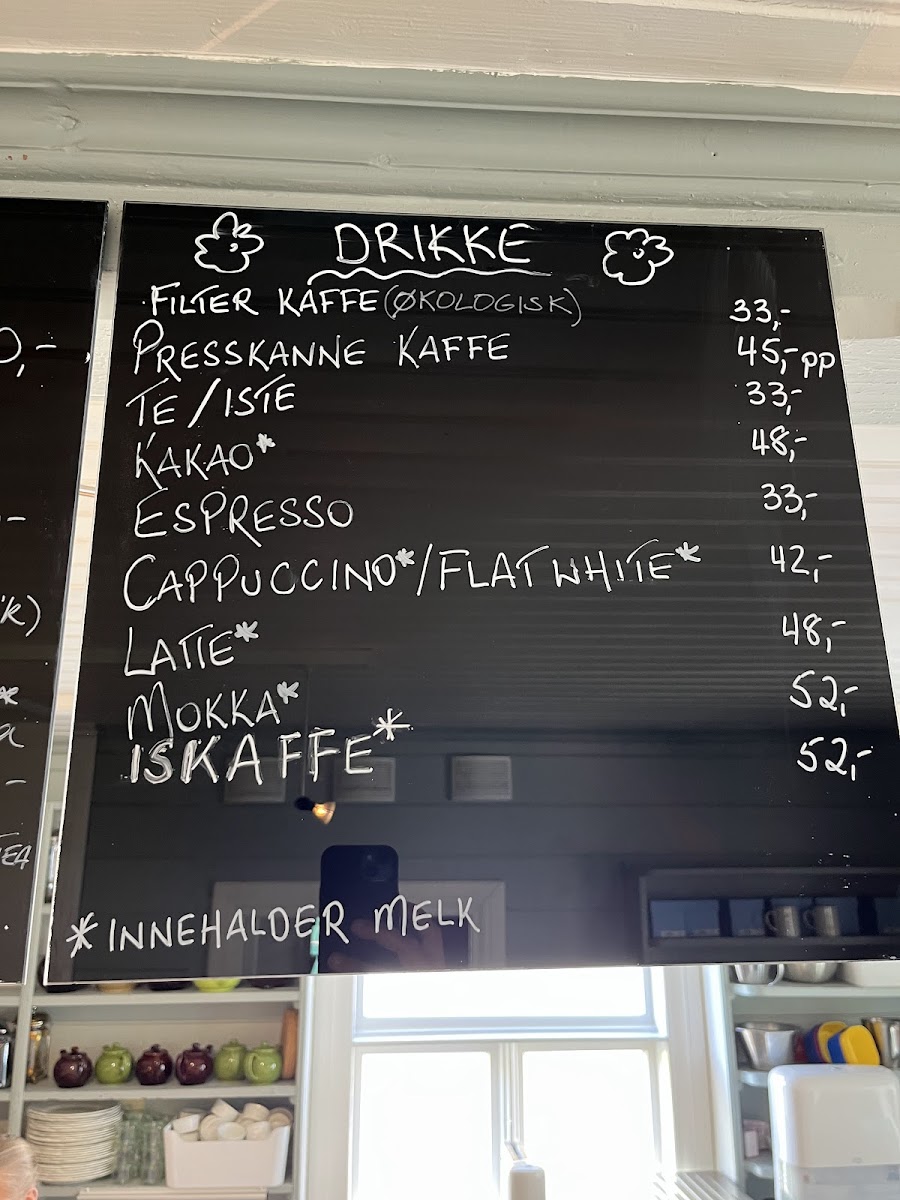 DRIKKE
FILTER KAFFE (ØKOLOGISK) 33,-
PRESSKANNE KAFFE 45,- pp
TE/ISTE 33,-
KAKAO* 48,-
ESPRESSO 33,-
CAPPUCCINO*/FLAT WHITE* 42,-
LATTE* 48,-
MOKKA* 52,-
ISKAFFE* 52,-
*INNEHALDER MELK